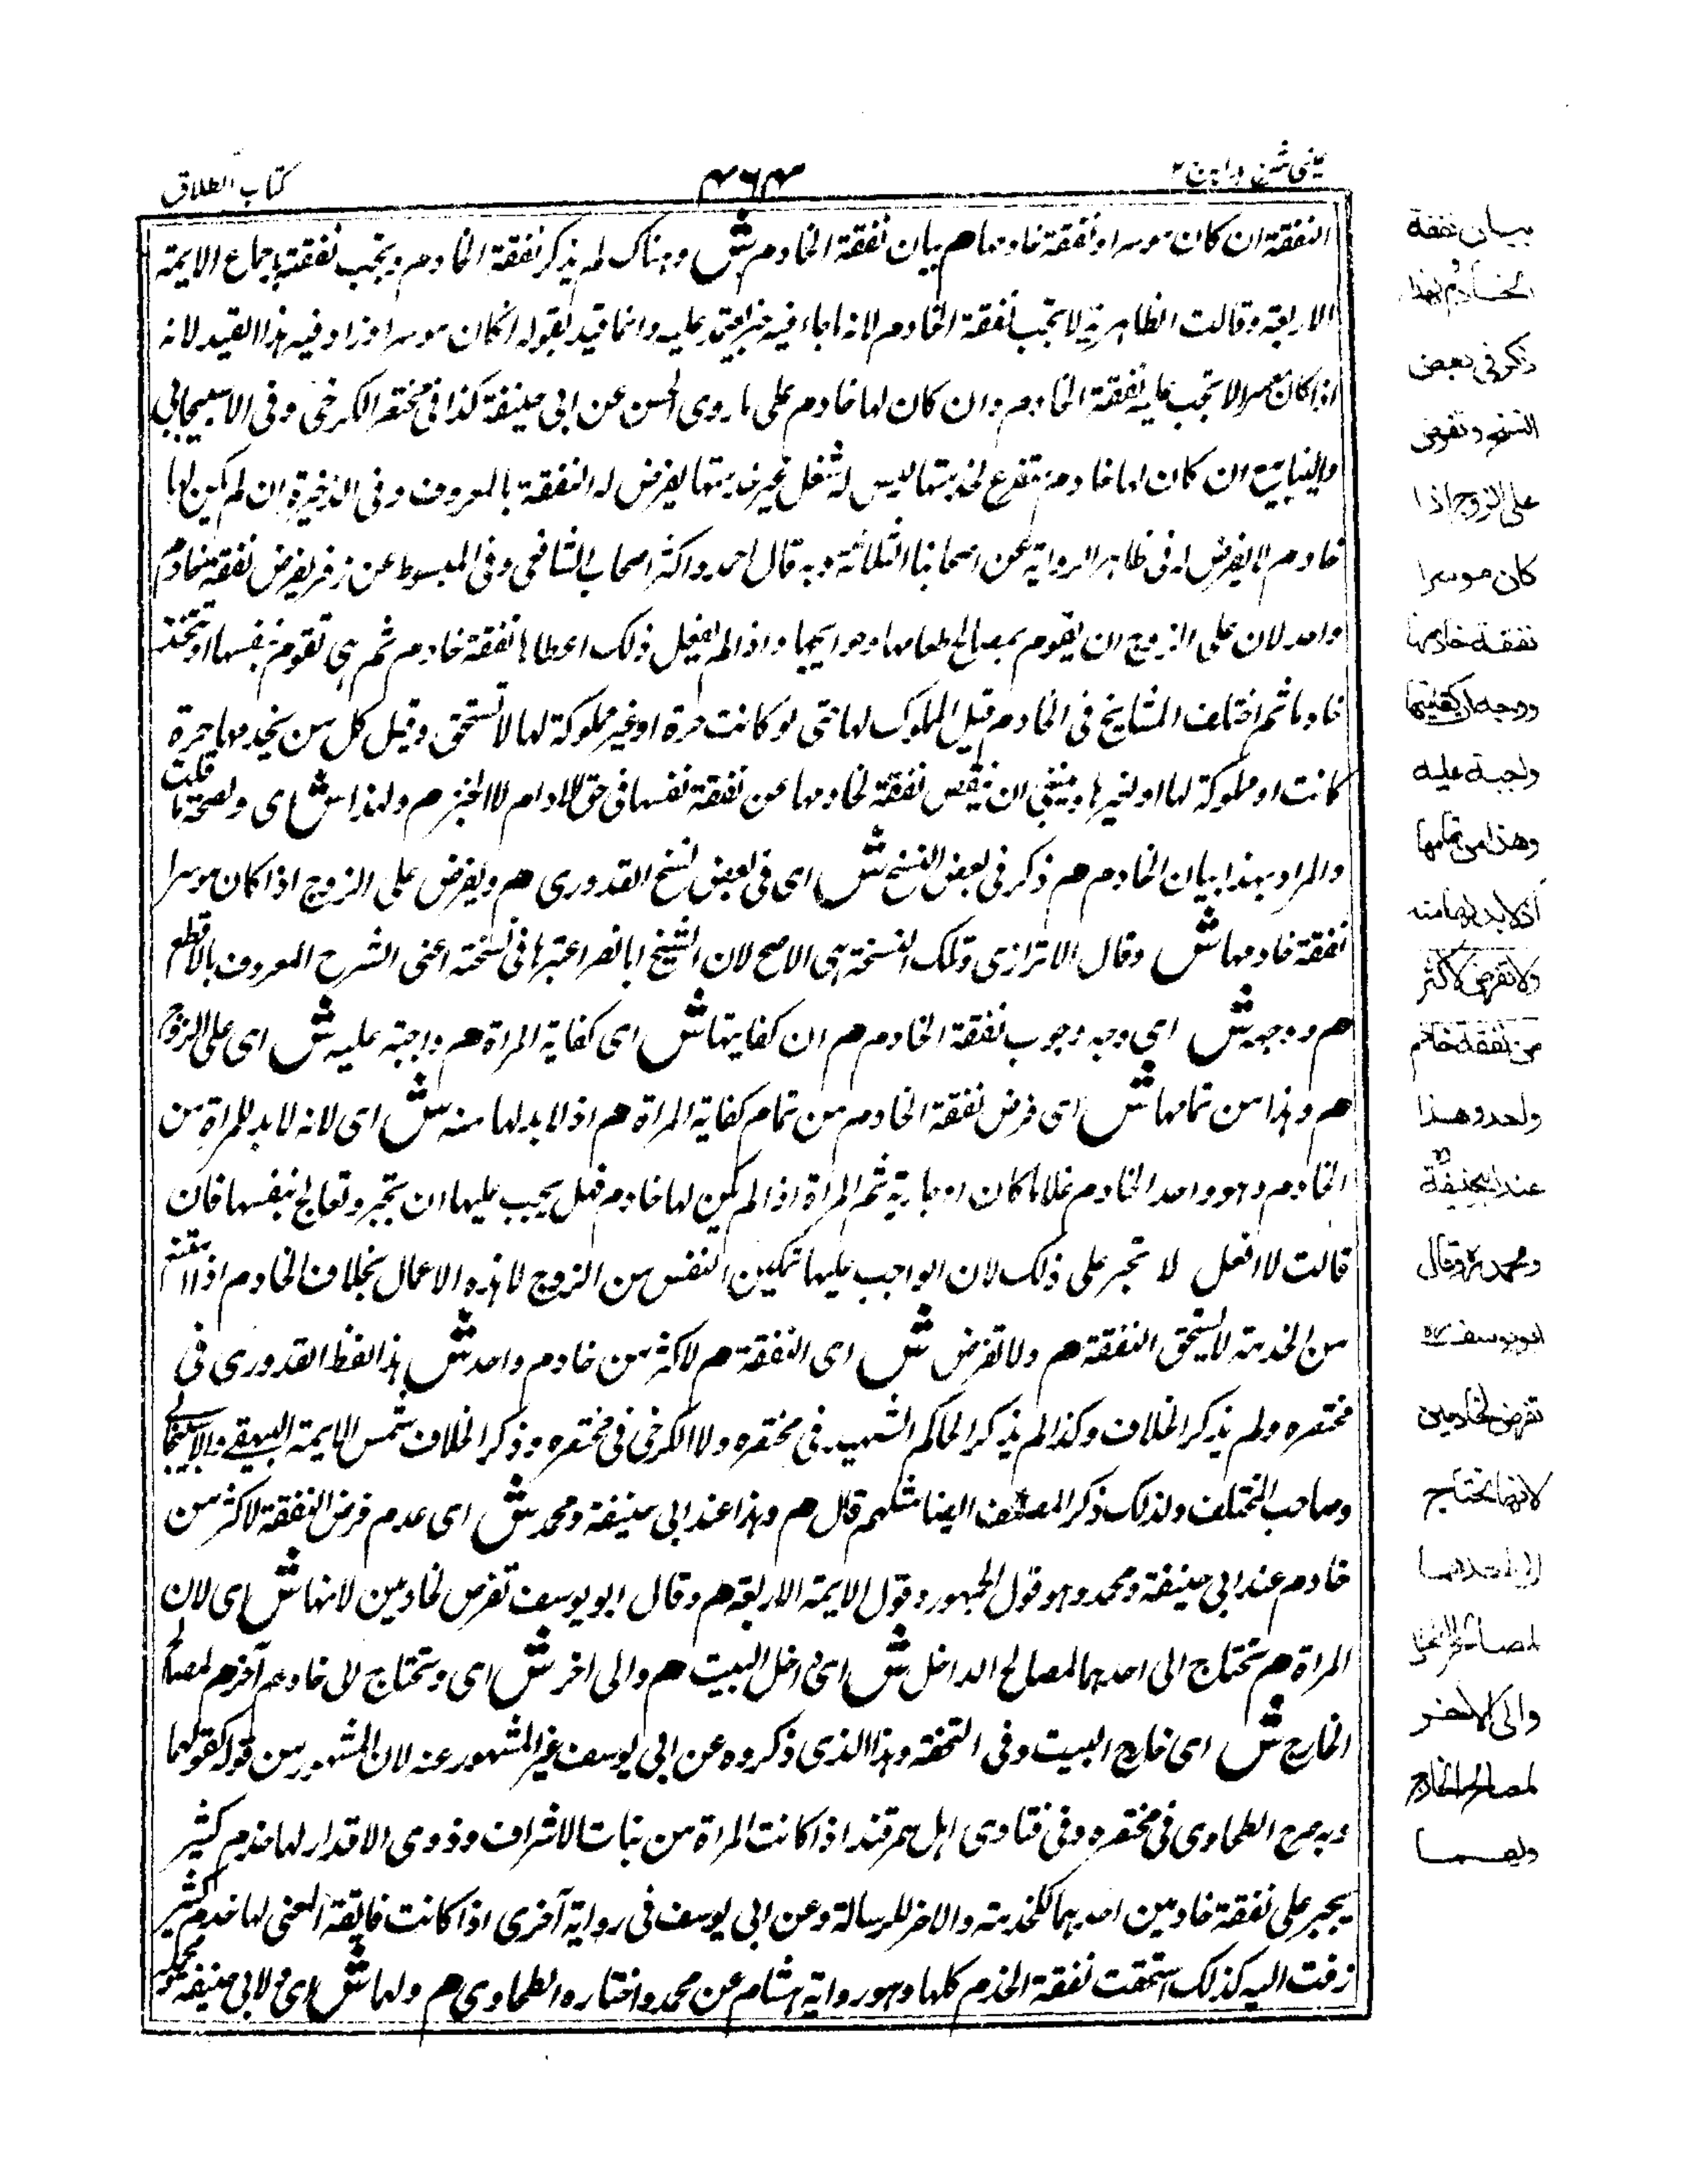 كتاب الطلاق
النفقة ان كان موسرا ونفقة خادمها هم بيان نفقة الخادم ش وهناك لم يذكر نفقة الخادم ويجب نفقته باجماع الايمة
الاربعة وقالت الظاهرية لا تجب نفقة الخادم لانه ما جاء فيه خبر يعتمد عليه وانما قيد بقوله ان كان موسرا وزاد فيه هذا القيد لانه
اذا كان معسرا لا تجب عليه نفقة الخادم وان كان لها خادم على ما روى الحسن عن ابى حنيفة كذا فى مختصر الكرخى وفى الاسبيجابى
والينابيع ان كان لها خادم متفرع لخدمتها ليس له شغل غير خدمتها يفرض له النفقة بالمعروف وفى الذخيرة ان لم يكن لها
خادم لا يفرض له فى ظاهر الرواية عن اصحابنا الثلاثة وبه قال احمد واكثر اصحاب الشافعى وفى المبسوط عن زفر يفرض نفقة خادم
واحد لان على الزوج ان يقوم بمصالح طعامها وحوايجها واذا لم يفعل ذلك اعطاها نفقة خادم ثم هى تقوم بنفسها او تتخذ
خادما ثم اختلف المشايخ فى الخادم قيل المملوك لها حتى لو كانت حرة او غير مملوكة لها لا تستحق وقيل كل من يخدمها حرة
كانت او مملوكة لها او لغيرها وينبغى ان ينقص نفقة لخادمها عن نفقة نفسها فى حق الادام لا الخبز هم ولهذا ش اى ولصحة ما قلت
والمراد بهذا بيان الخادم هم ذكر فى بعض النسخ ش اى فى بعض نسخ القدورى هم ويفرض على الزوج اذا كان موسرا
نفقة خادمها ش وقال الاترازى وتلك النسخة هى الاصح لان الشيخ ابا نصر اعتبرها فى نسخته اعنى الشرح المعروف بالاقطع
هم ووجهه ش اى وجه وجوب نفقة الخادم هم ان كفايتها ش اى كفاية المراة هم واجبة عليه ش اى على الزوج
هم وهذا من تمامها ش اى فرض نفقة الخادم من تمام كفاية المراة هم اذ لا بد لها منه ش اى لانه لا بد للمراة من
الخادم وهو واحد الخادم غلاما كان او جارية ثم المراة اذا لم يكن لها خادم فهل يجب عليها ان تخبز وتعالج بنفسها فان
قالت لا افعل لا تجبر على ذلك لان الواجب عليها تمكين النفس من الزوج لا هذه الاعمال بخلاف الخادم اذا امتنع
من الخدمة لا يستحق النفقة هم ولا تفرض ش اى النفقة هم لاكثر من خادم واحد ش هذا لفظ القدورى فى
مختصره ولم يذكر الخلاف وكذا لم يذكر الحاكم الشهيد فى مختصره ولا الكرخى فى مختصره وذكر الخلاف شمس الايمة البيهقى والاسبيجابى
وصاحب المختلف ولذلك ذكر المصنف ايضا مثلهم قال هم وهذا عند ابى حنيفة ومحمد ش اى عدم فرض النفقة لاكثر من
خادم عند ابى حنيفة ومحمد وهو قول الجمهور وقول الايمة الاربعة هم وقال ابو يوسف تفرض لخادمين لانها ش اى لان
المراة هم تحتاج الى احدهما لمصالح الداخل ش اى داخل البيت هم والى اخر ش اى وتحتاج الى خادم آخر هم لمصالح
الخارج ش اى خارج البيت وفى التحفة وهذا الذى ذكروه عن ابى يوسف غير المشهور عنه لان المشهور من قوله كقولهما
وبه صرح الطحاوى فى مختصره وفى فتاوى اهل سمرقند اذا كانت المراة من بنات الاشراف وذوى الاقدار لها خدم كثير
يجبر على نفقة خادمين احدهما للخدمة والاخر للرسالة وعن ابى يوسف فى رواية آخرى اذا كانت فايقة الغنى لها خدم كثير
زفت اليه كذلك استحقت نفقة الخدم كلها وهو رواية هشام عن محمد واختاره الطحاوى هم ولهما ش اى لابى حنيفة ومحمد
بيان نفقة
الخادم ولهذا
ذكر فى بعض
النسخ وتفرض
على الزوج اذا
كان موسرا
نفقة خادمها
ووجهه ان كفايتها
واجبة عليه
وهذا من تمامها
اذ لا بد لها منه
ولا تفرض لاكثر
من نفقة خادم
واحد وهذا
عند ابى حنيفة
ومحمد وقال
ابو يوسف
تفرض لخادمين
لانها تحتاج
الى احدهما
لمصالح الداخل
والى الاخر
لمصالح الخارج
ولهما